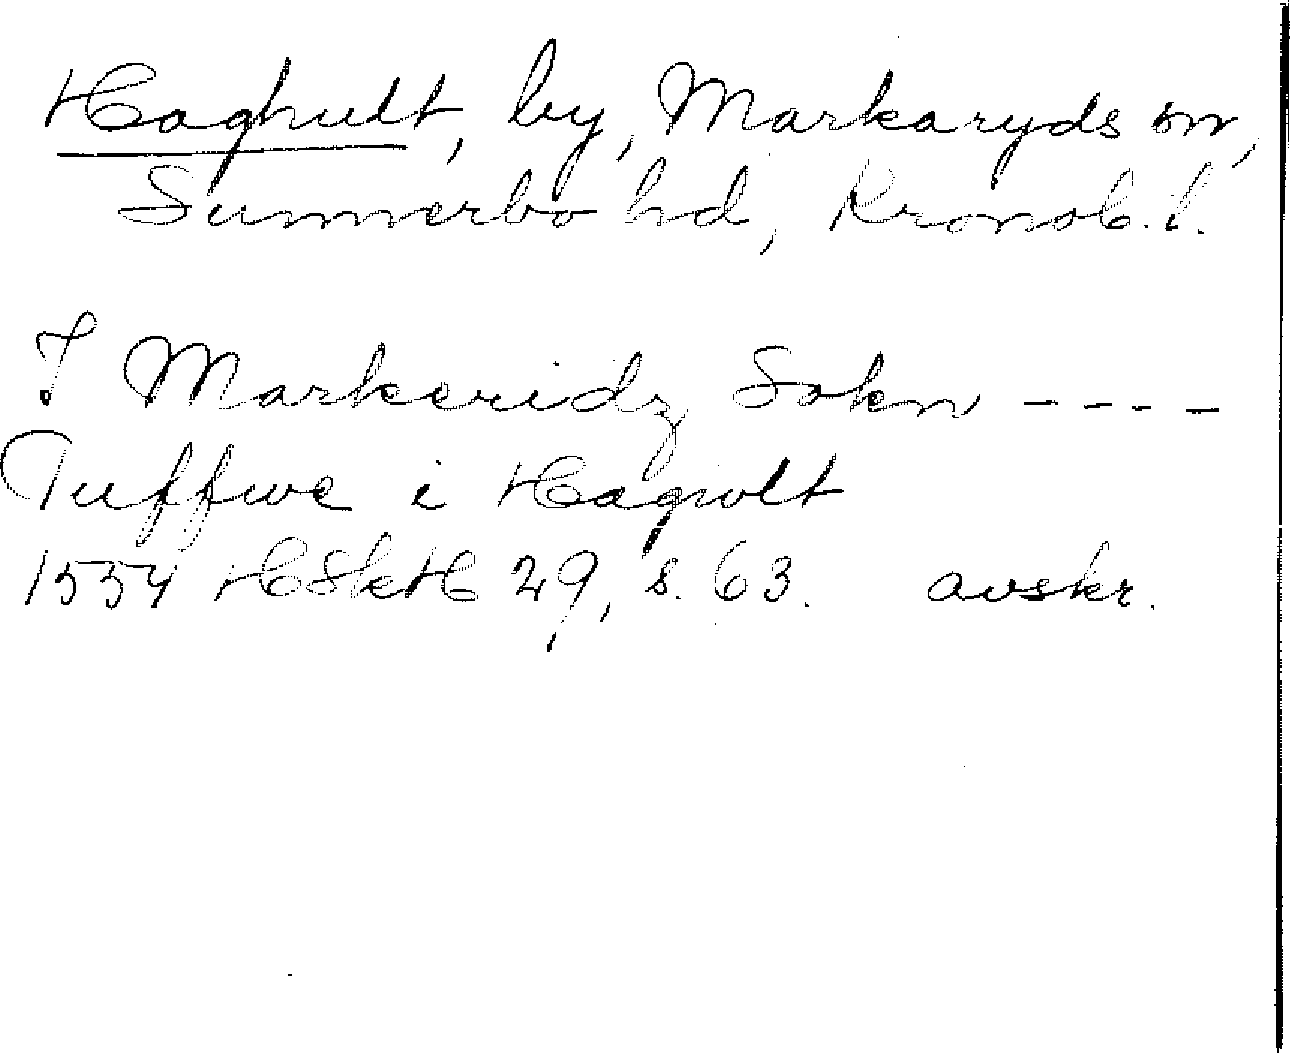 Haghult, by, Markaryds sn,
Sunnerbo hd, Kronob. l.
I Markeridz Sokn ----
Tuffwe i Hagwlt
1554 HSkH 29, s. 63. avskr.